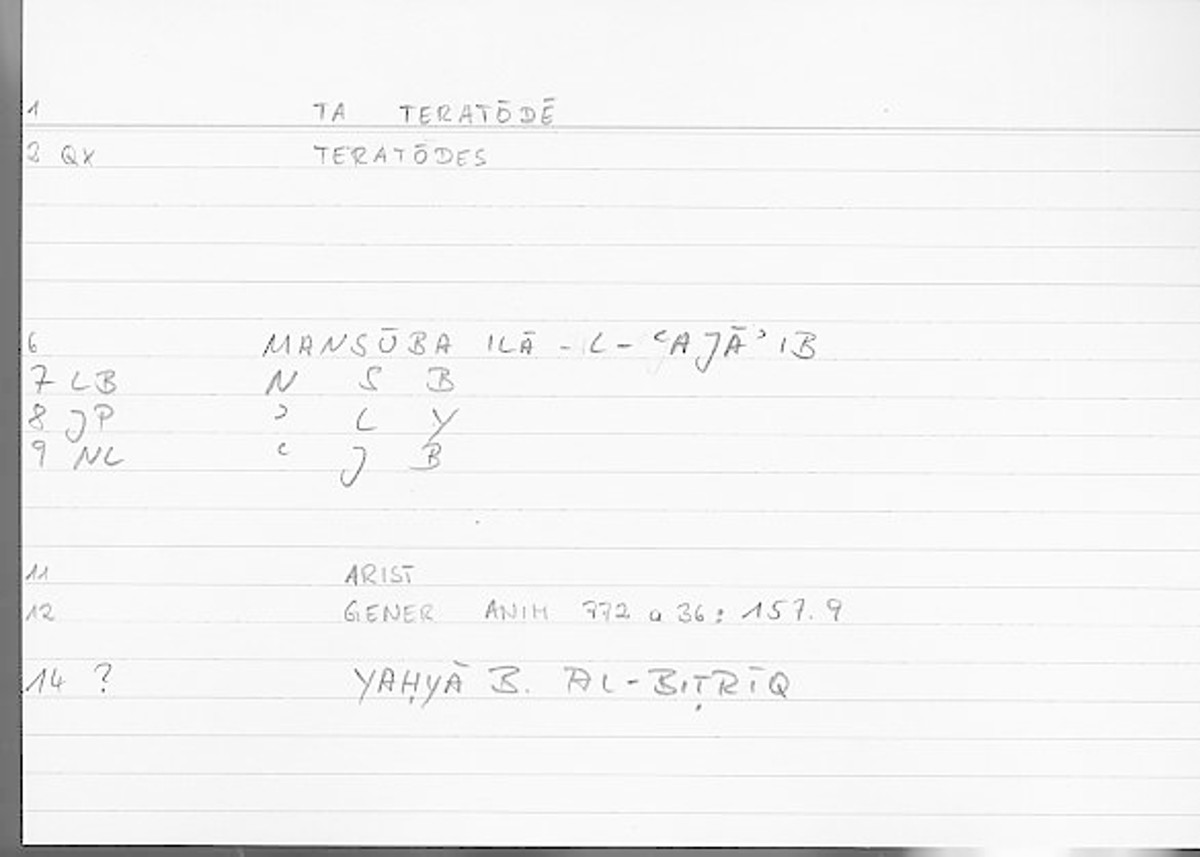 1 TA TERATŌDĒ
2 QX TERATŌDES
6 MANSŪBA ILĀ -L- ʿAJĀʾIB
7 LB N S B
8 JP ʾ L Y
9 NL ʿ J B
11 ARIST
12 GENER ANIM 772 a 36 : 157.9
14 ? YAḤYĀ B. AL-BIṬRĪQ